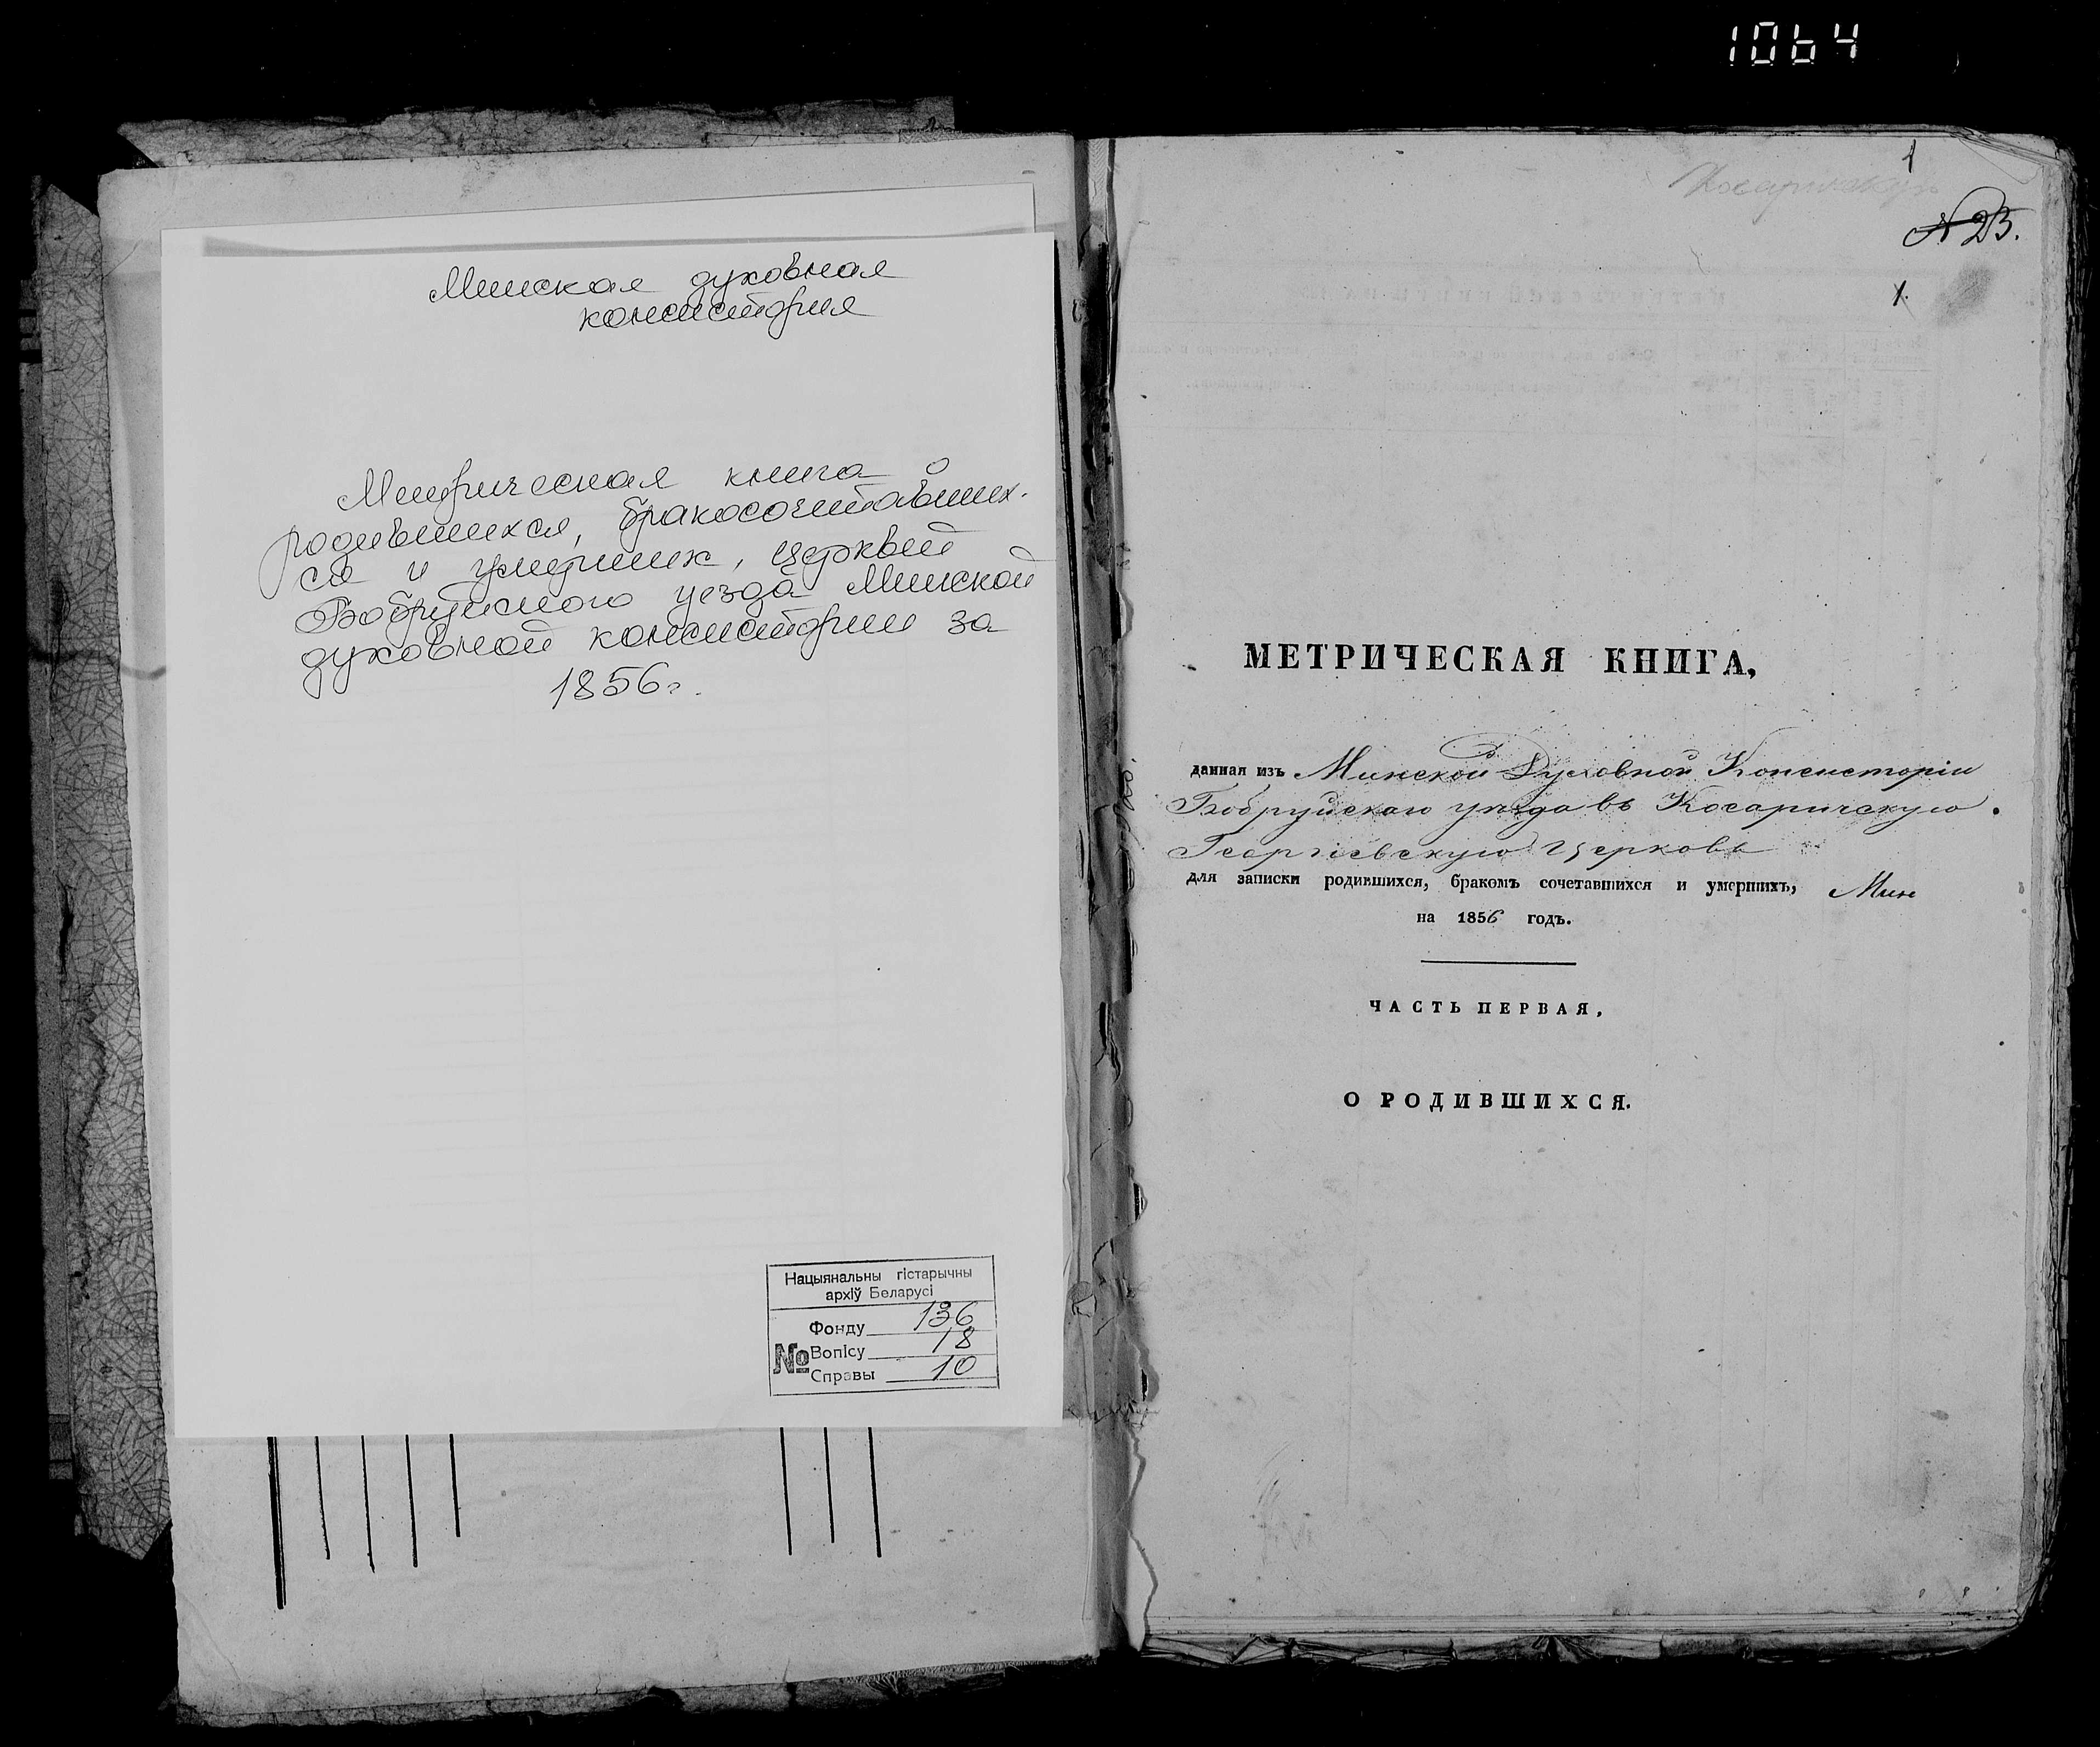 1064
Минская духовная
консистория
Метрическая книга о
родившихся, бракосочетавших-
ся и умерших, церквей
Бобруйского уезда Минской
духовной консистории за
1856 г.
Нацыянальны гістарычны
архіў Беларусі
№
Фонду 136
Вопісу 18
Справы 10
1
№ 23.
1.
МЕТРИЧЕСКАЯ КНИГА,
данная изъ Минской Духовной Консисторіи
Бобруйскаго уѣзда въ Косаричскую
Георгіевскую Церковь
для записки родившихся, бракомъ сочетавшихся и умершихъ, Мин
на 1856 годъ.
ЧАСТЬ ПЕРВАЯ,
О РОДИВШИХСЯ.